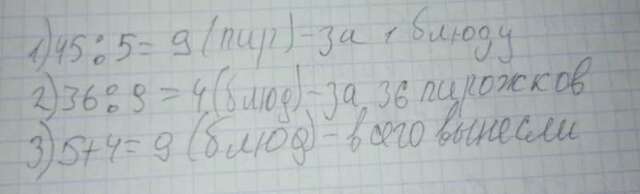 1) 45:5=9 (пир) - за 1 блюду
2) 36:9=4 (блюд) - за 36 пирожков
3) 5+4=9 (блюд) - всего вынесли